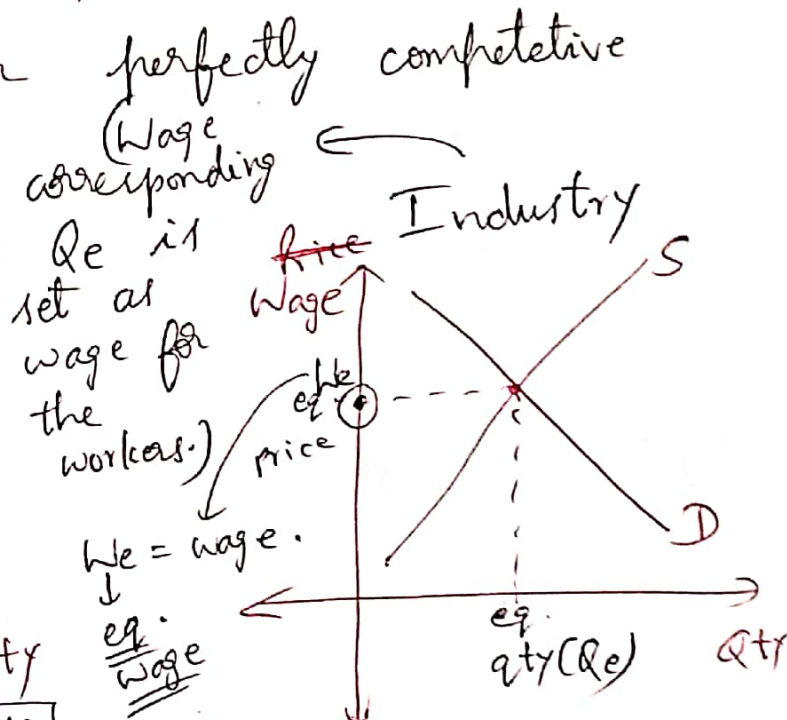 perfectly competetive
(Wage
corresponding
Qe is
set as
wage for
the
workers.)
Industry
Price
Wage
S
We
eq.
price
We = wage.
eq.
wage
D
eq.
qty(Qe)
Qty
ty